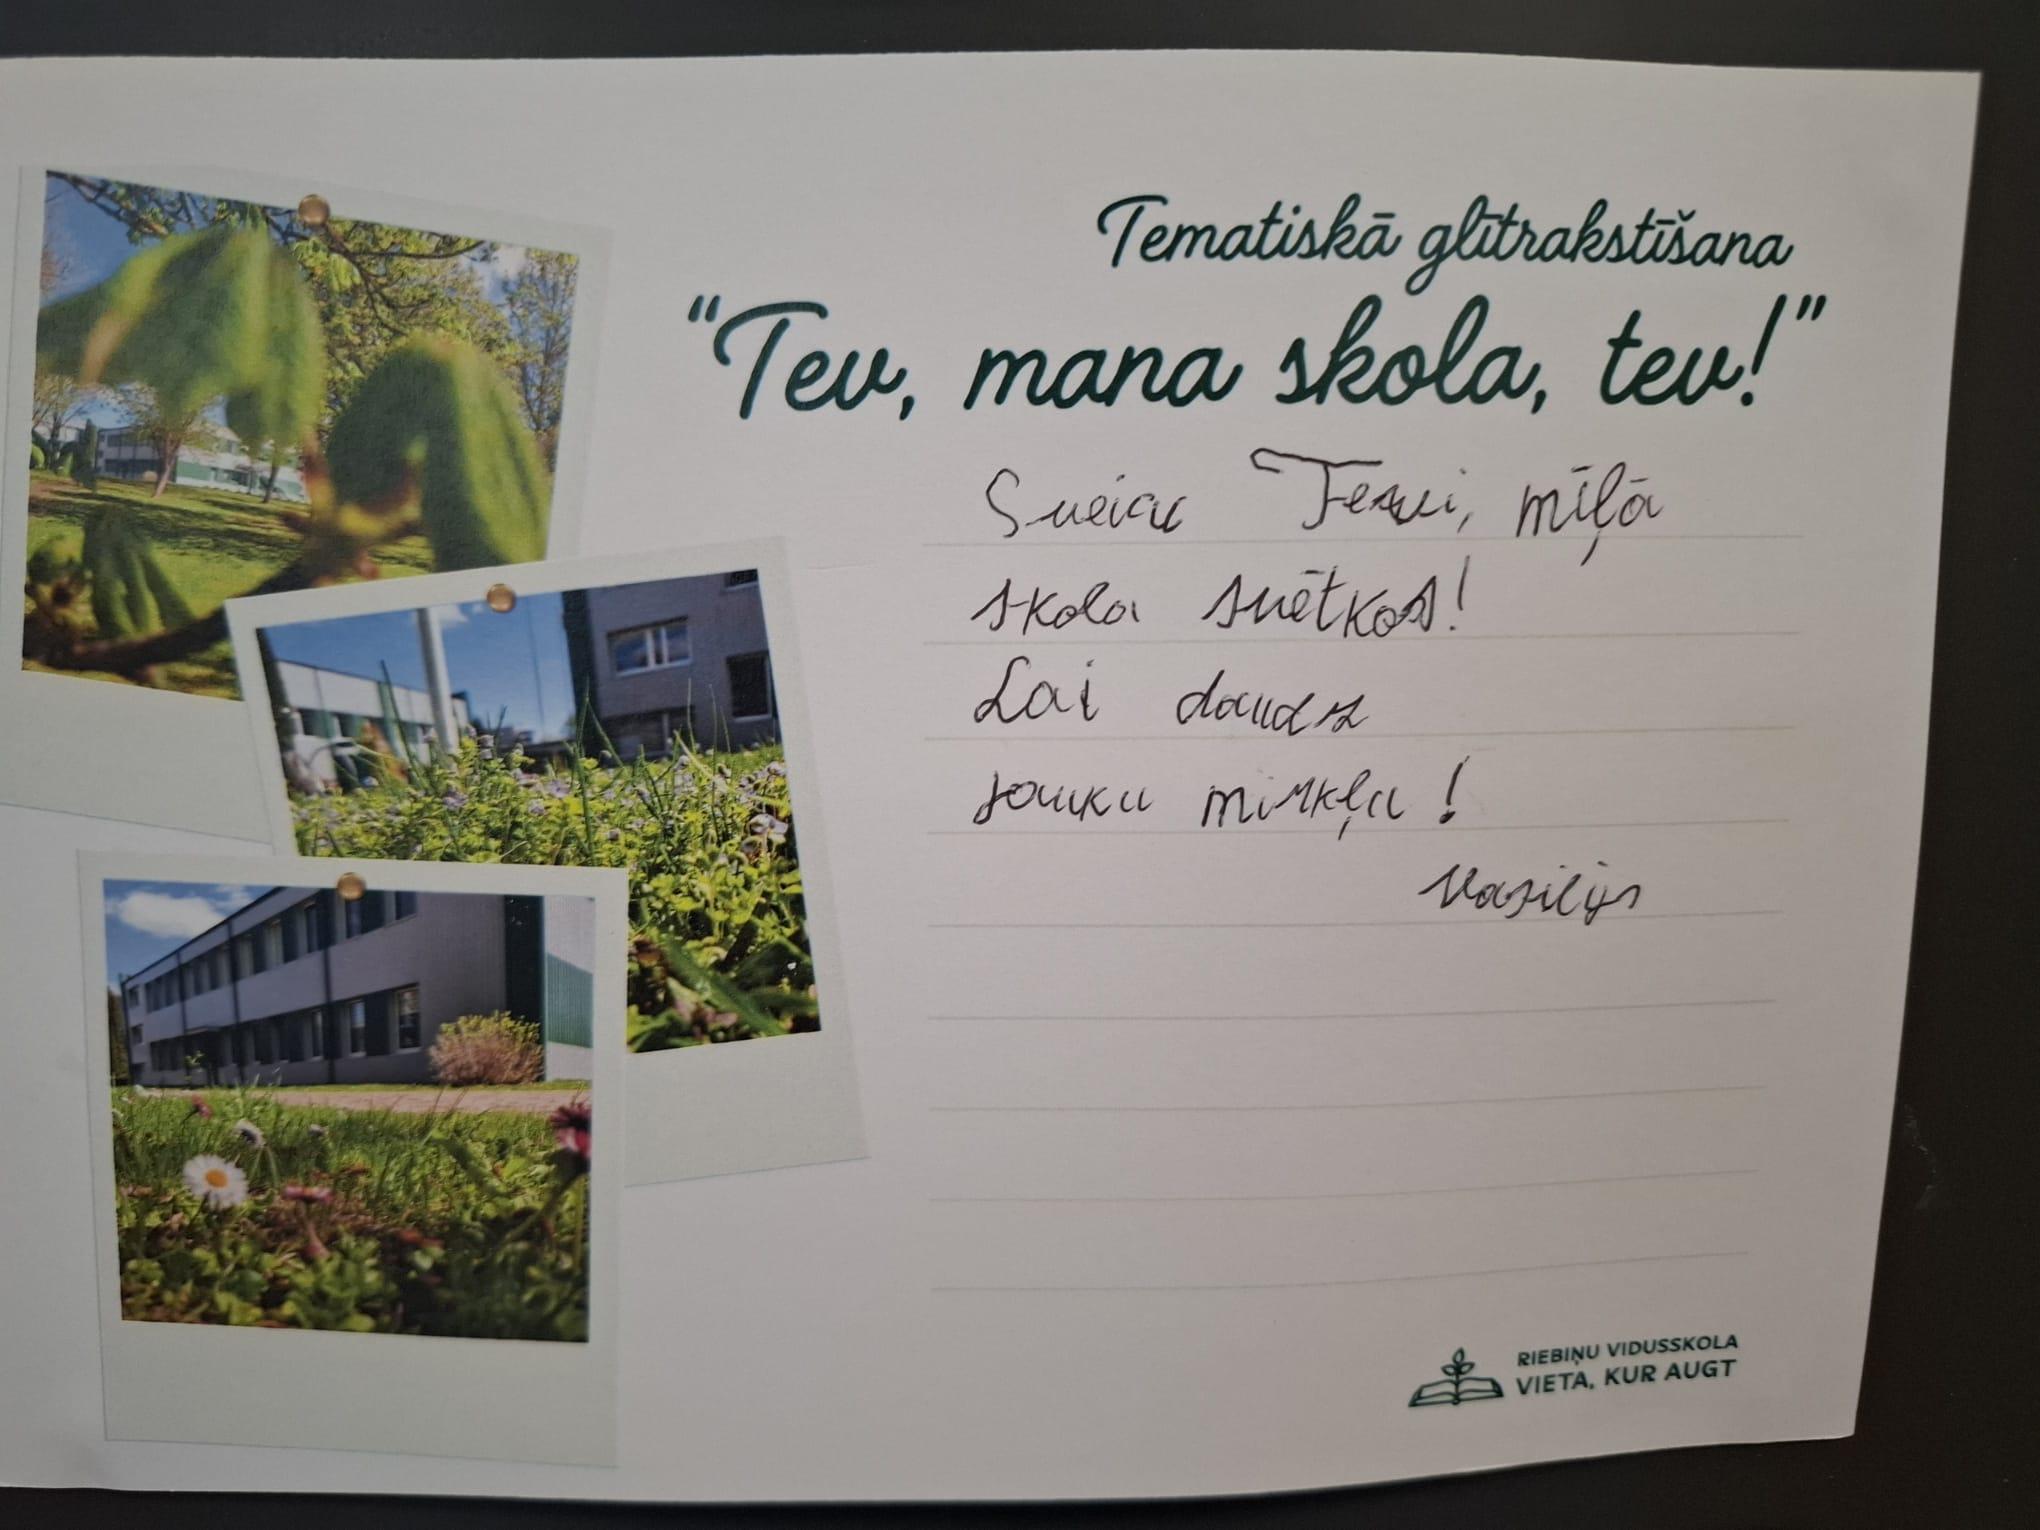 Tematiskā glītrakstīšana
“Tev, mana skola, tev!”
Sveicu Tevi, mīļā
skola svētkos!
Lai daudz
jauku mirkļu!
Vasilijs
RIEBIŅU VIDUSSKOLA
VIETA, KUR AUGT